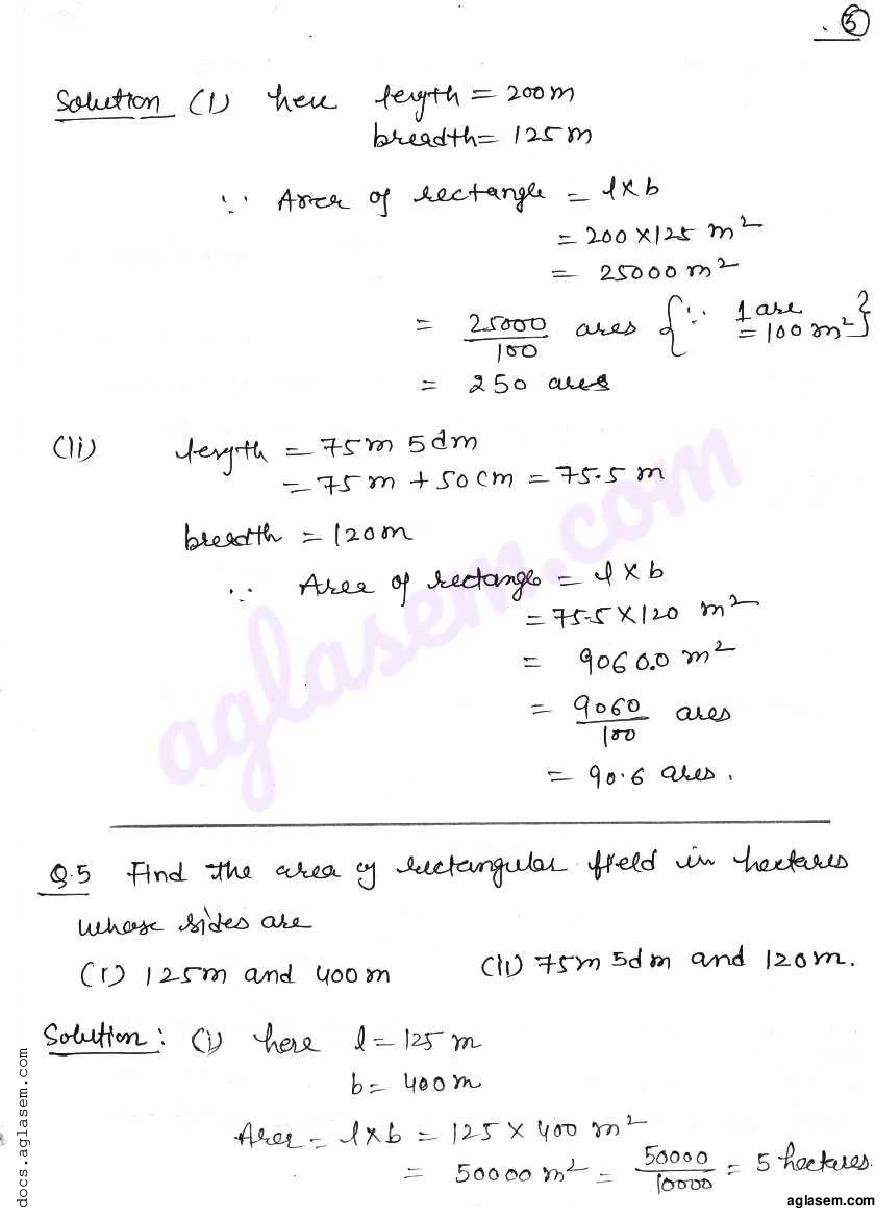 5
Solution (i) here length = 200m
breadth = 125m
∵ Area of rectangle = l×b
= 200×125 m²
= 25000 m²
= 25000/100 ares {∵ 1 are = 100 m²}
= 250 ares
(ii) length = 75m 5dm
= 75m + 50cm = 75.5 m
breadth = 120m
∵ Area of rectangle = l×b
= 75.5×120 m²
= 9060.0 m²
= 9060/100 ares
= 90.6 ares.
Q.5 Find the area of rectangular field in hectares
whose sides are
(i) 125m and 400m (ii) 75m 5dm and 120m.
Solution: (i) here l = 125 m
b = 400m
Area = l×b = 125 × 400 m²
= 50000 m² = 50000/10000 = 5 hectares.
aglasem.com
docs.aglasem.com
aglasem.com